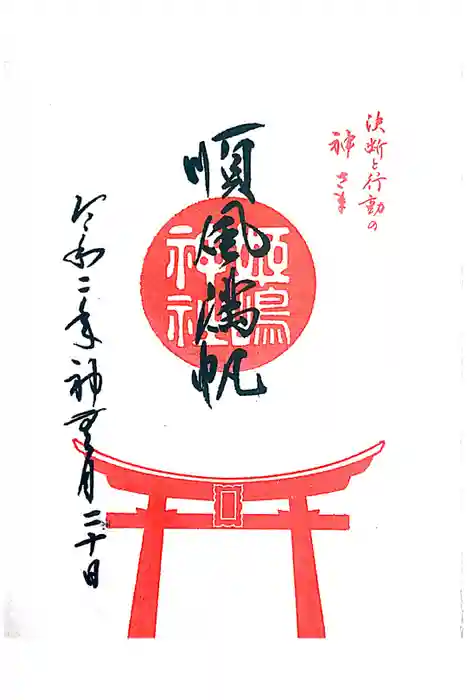 決断と行動の
神さま
順風満帆
西嶋
神社
令和二年神無月二十日